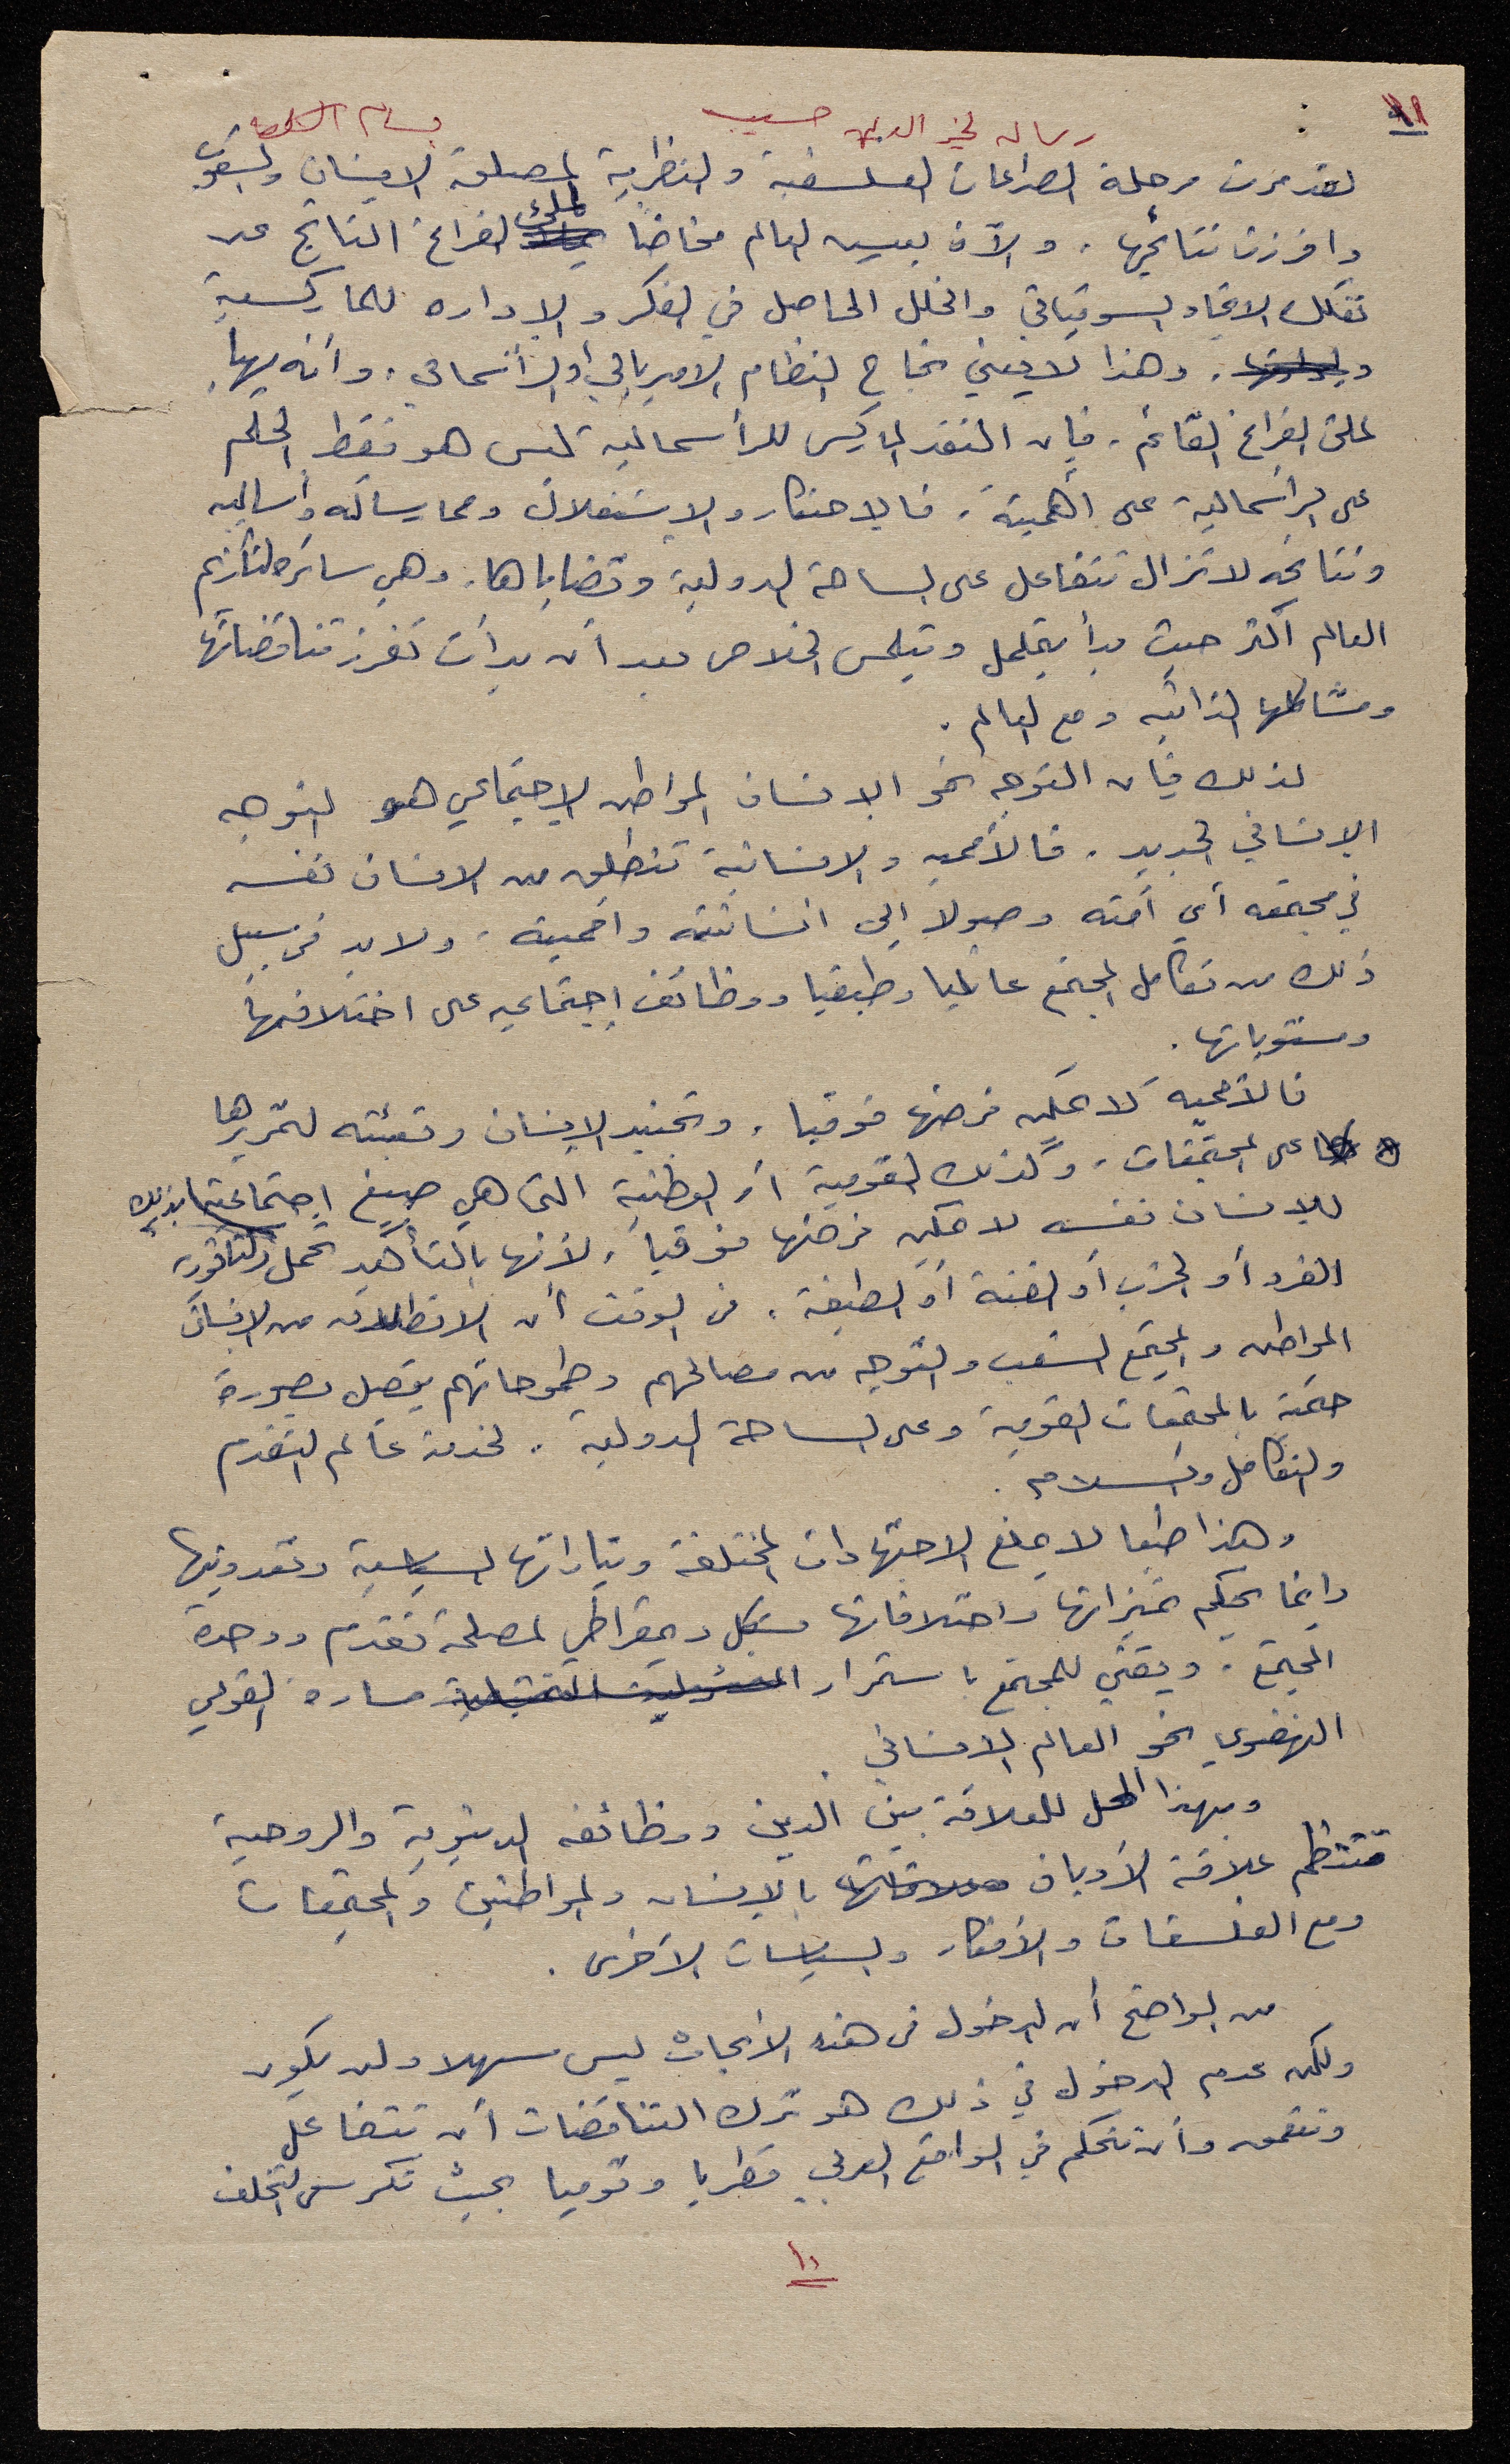 ١١
رسالة لخير الدين حسيب
بسام
لقد مرت مرحلة الصراعات الفلسفية والنظرية لمصلحة الانسان والشعوب
وافرزت نتائجها. والآن يعيش العالم مخاضا لملئ الفراغ الناتج عن
تفكك الاتحاد السوفياتي والخلل الحاصل في الفكر والادارة للماركسية
. وهذا لا يعني نجاح النظام الامبريالي أو الرأسمالي، وأنه يهيأ
لملئ الفراغ القائم. فإن النقد الماركسي للرأسمالية ليس هو فقط الحكم
على الرأسمالية على أهميته. فالاحتكار والاستغلال وممارساته وأساليبه
ونتائجه لا تزال تتفاعل على الساحة الدولية وقضاياها. وهي سائرة لتأزيم
العالم أكثر حيث بدأ يتململ ويتلمس الخلاص بعد أن بدأت تفرز تناقضاتها
ومشاكلها الذاتية ومع العالم.
لذلك فإن التوجه نحو الانسان المواطن الاجتماعي هو التوجه
الانساني الجديد. فالأممية والانسانية تنطلق من الانسان نفسه
في مجتمعه أي أمته وصولا إلى انسانيته وأمميته. ولا بد في سبيل
ذلك من تكامل المجتمع عائليا وطبقيا ووظائف إجتماعية على اختلافها
ومستوياتها.
فالأممية لا يمكن فرضها فوقيا، وتجنيد الانسان وتعبئته لتمريرها
على المجتمعات. وكذلك القومية أو الوطنية التي هي صيغ إجتماعية بذلك
للانسان نفسه لا يمكن فرضها فوقياً، لأنها بالتأكيد تحمل دكتاتورية
الفرد أو الحزب أو الفئة أو الطبقة. في الوقت أن الانطلاق من الانسان
المواطن والمجتمع الشعب والتوجه من مصالحهم وطموحاتهم يتصل بصورة
حتمية بالمجتمعات القومية وعلى الساحة الدولية. لخدمة عالم التقدم
والتكامل والسلام.
وهذا طبعا لا يمنع الاجتهادات المختلفة وتياراتها السياسية وتعدديتها
وانما يحكم تميزاتها واختلافاتها بشكل ديمقراطي لمصلحة تقدم ووحدة
المجتمع. ويقضي للمجتمع باستمرار مساره القومي
النهضوي نحو العالم الانساني.
وبهذا الحل للعلاقة بين الدين ووظائفه الدنيوية والروحية
تنتظم علاقة الأديان بالانسان والمواطنين والمجتمعات
ومع الفلسفات والأفكار والسياسات الأخرى.
من الواضح أن الدخول في هذه الأبحاث ليس سهلا ولن يكون
ولكن عدم الدخول في ذلك هو ترك التناقضات أن تتفاعل
وتتعمق وأن تتحكم في الواقع العربي قطريا وقوميا بحيث تكرس التخلف
١٠